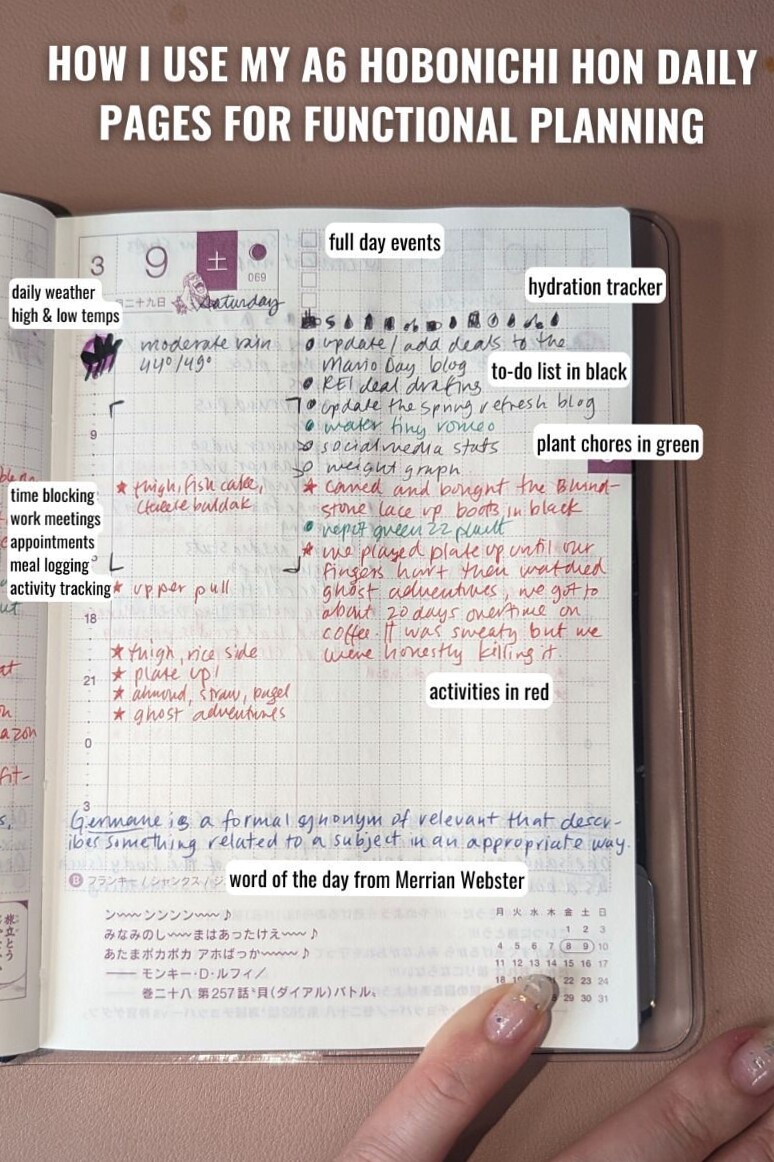 HOW I USE MY A6 HOBONICHI HON DAILY
PAGES FOR FUNCTIONAL PLANNING
full day events
3 9 土
069
二十九日 Saturday
daily weather
high & low temps
hydration tracker
moderate rain
44°/49°
update/add deals to the
Mario Day blog
REI deal drafting
to-do list in black
update the spring refresh blog
water tiny romeo
social media stats
weight graph
plant chores in green
9
time blocking
work meetings
appointments
meal logging
activity tracking
★ thigh, fish cake,
cheese buldak
★ upper pull
18
★ thigh, rice side
★ plate up!
21
★ almond, straw, bagel
★ ghost adventures
0
3
★ caved and bought the Blund-
stone lace up boots in black
repot queen 22 plant
★ we played plate up until our
fingers hurt then watched
ghost adventures, we got to
about 20 days overtime on
coffee. It was sweaty but we
were honestly killing it.
activities in red
Germane is a formal synonym of relevant that descr-
ibes something related to a subject in an appropriate way.
word of the day from Merrian Webster
B フランキー/シャンクス/ジ
ン〰〰ンンンン〰〰♪
みなみのし〰〰まはあったけえ〰〰♪
あたまポカポカ アホばっか〰〰♪
―― モンキー・D・ルフィ／
―― 巻二十八 第257話“貝(ダイアル)バトル〟
月 火 水 木 金 土 日
1 2 3
4 5 6 7 8 9 10
11 12 13 14 15 16 17
18 22 23 24
28 29 30 31
at
azon
fit-